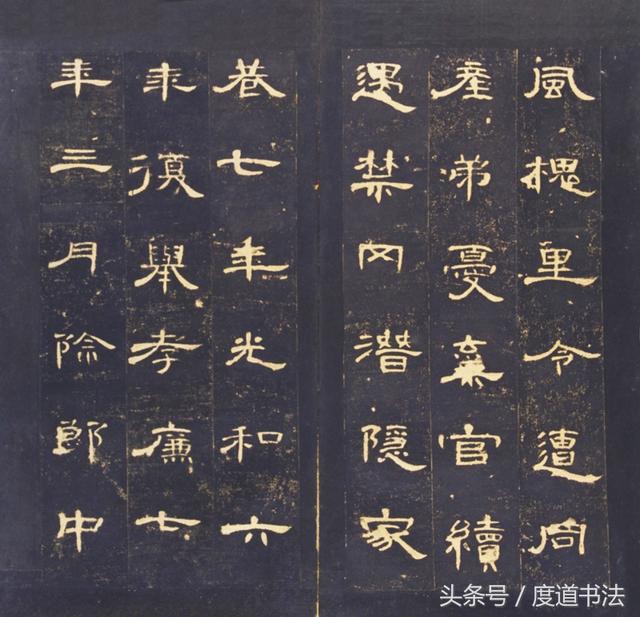 風槐里令遭同
產弟憂棄官續
遇禁网潛隱家
巷七年光和六
年復舉孝廉七
年三月除郎中
头条号 / 度道书法